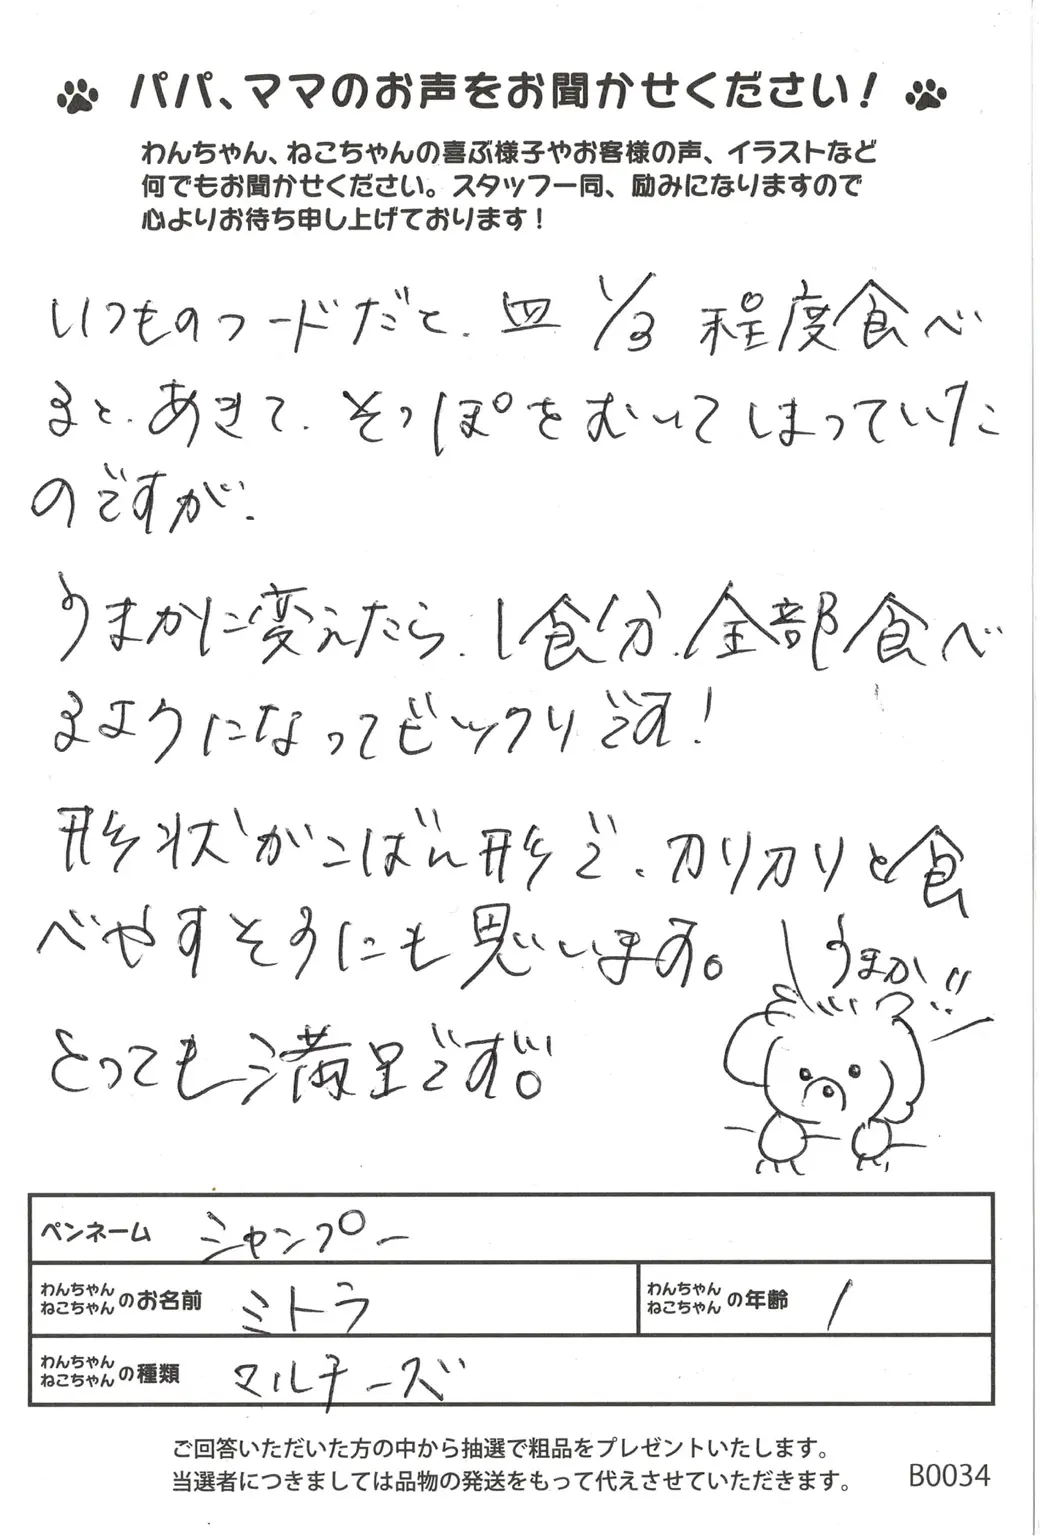 パパ、ママのお声をお聞かせください！
わんちゃん、ねこちゃんの喜ぶ様子やお客様の声、イラストなど
何でもお聞かせください。スタッフ一同、励みになりますので
心よりお待ち申し上げております！
いつものフードだと、皿 1/3 程度食べ
ると、あきて、そっぽをむいてしまっていた
のですが、
うまかに変えたら、1食分、全部食べ
るようになってビックリです！
形状がこばん形で、カリカリと食
べやすそうにも思います。
うまか!!
とっても満足です。
ペンネーム シャンプー
わんちゃん ねこちゃん のお名前 ミトラ
わんちゃん ねこちゃん の年齢 1
わんちゃん ねこちゃん の種類 マルチーズ
ご回答いただいた方の中から抽選で粗品をプレゼントいたします。
当選者につきましては品物の発送をもって代えさせていただきます。
B0034